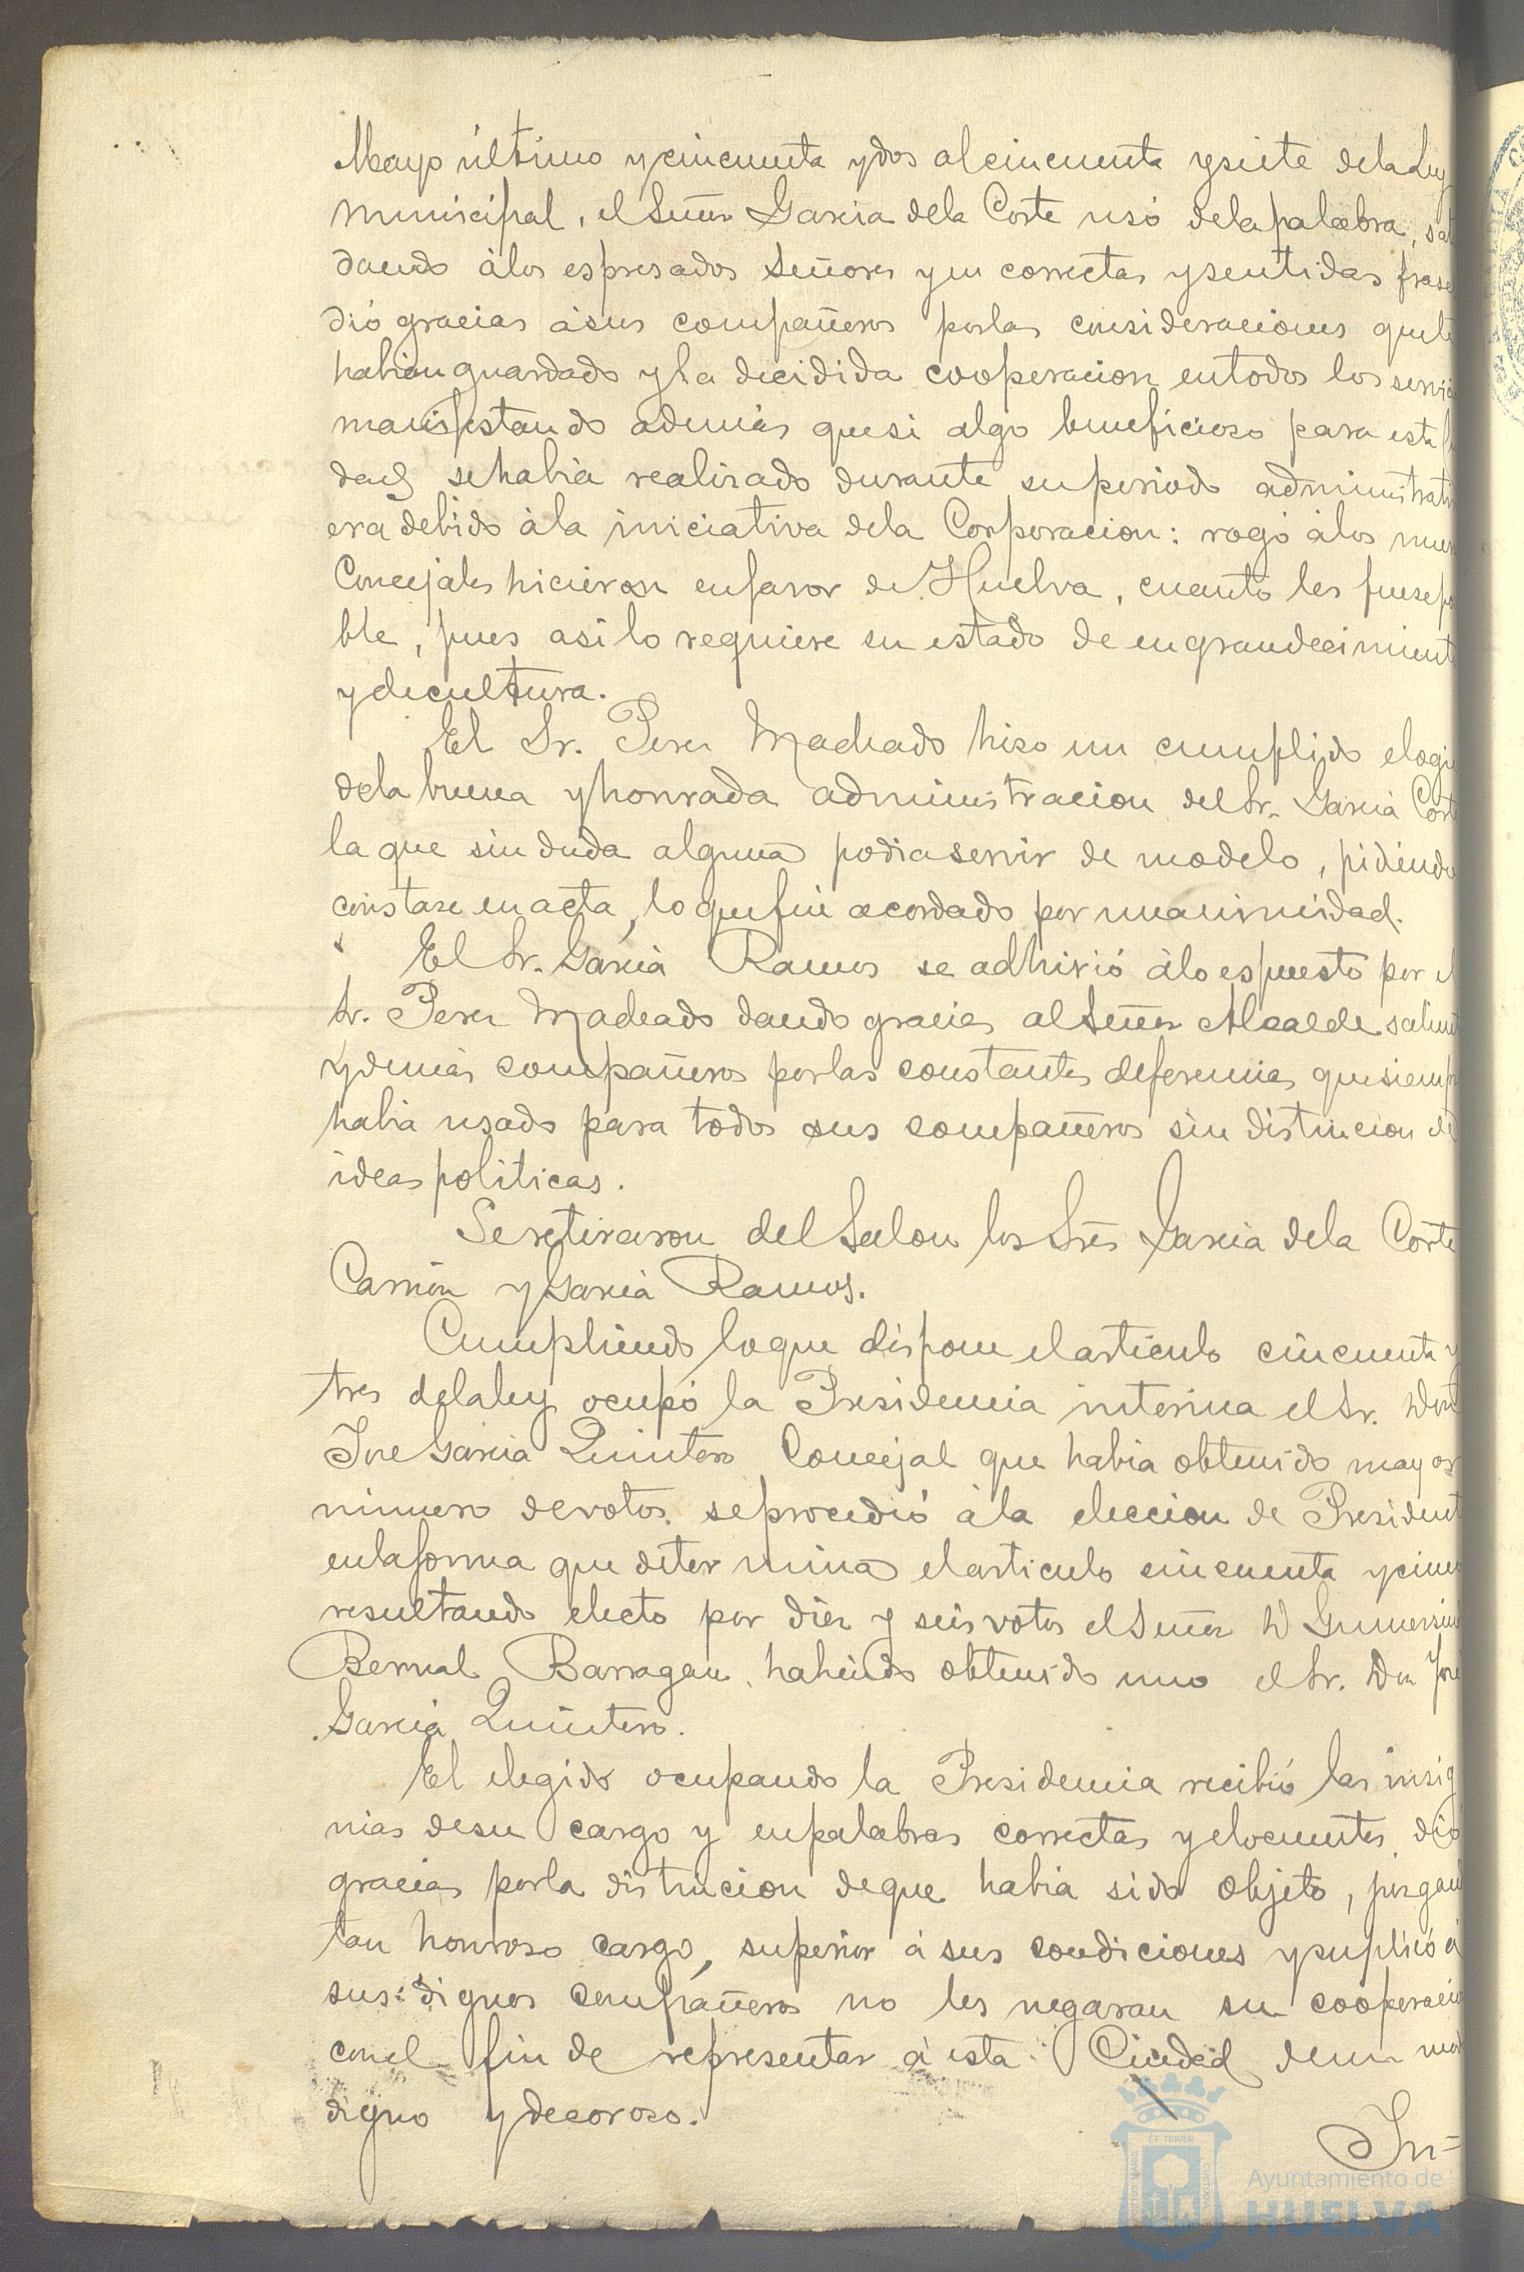 Mayo último y cincuenta y dos al cincuenta y siete de la Ley
Municipal, el Señor Garcia de la Corte usó de la palabra,
dando á los espresados Señores y en correctas y sentidas frase
dió gracias á sus compañeros por las consideraciones que le
habian guardado y la decidida cooperacion en todos los
manifestando además que si algo beneficioso para esta
dad se habia realizado durante su periodo administrati
era debido á la iniciativa de la Corporacion: rogó á los
Concejales hicieran en favor de Huelva, cuanto les fuese po
ble, pues asi lo requiere su estado de engrandecimient
y de cultura.
El Sr. Perez Machado hizo un cumplido elogi
de la buena y honrada administracion del Sr. Garcia Cort
la que sin duda alguna podia servir de modelo, pidiendo
constase en acta, lo que fué acordado por unanimidad.
El Sr. Garcia Ramos se adhirió á lo espuesto por el
Sr. Perez Machado dando gracias al Señor Alcalde salient
y demás compañeros por las constantes deferencias que siemp
habia usado para todos sus compañeros sin distincion de
ideas politicas.
Se retiraron del Salon los Sres Garcia de la Corte
Carrión y Garcia Ramos.
Cumpliendo lo que dispone el articulo cincuenta y
tres de la ley ocupó la Presidencia interina el Sr. Don
Jose Garcia Quintero Concejal que habia obtenido mayor
número de votos. se procedió á la eleccion de President
en la forma que determina el articulo cincuenta y cinco
resultando electo por diez y seis votos el Señor D Gumersind
Bernal Barragan, habiendo obtenido uno el Sr. Don José
Garcia Quintero.
El elegido ocupando la Presidencia recibió las insig
nias de su cargo y en palabras correctas y elocuentes, dió
gracias por la distincion de que habia sido objeto, juzgand
tan honroso cargo, superior á sus condiciones y suplicó á
sus dignos compañeros no les negaran su cooperació
con el fin de representar á esta Ciudad de un mod
digno y decoroso.
In-
Ayuntamiento de
HUELVA